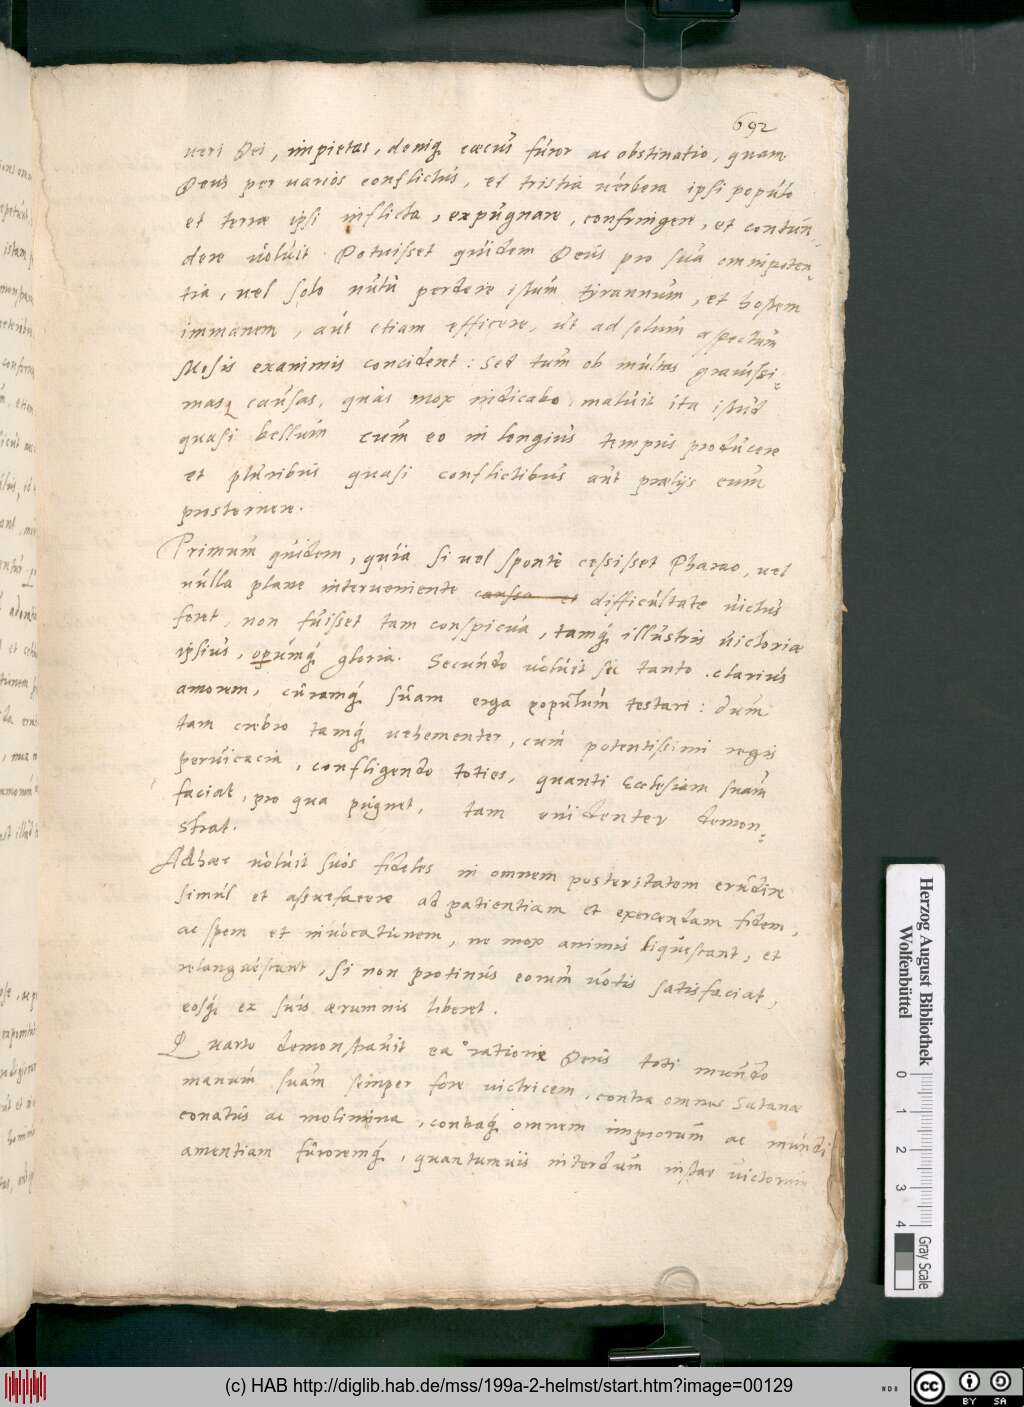 692
veri Dei, impietas, deniq; cæcus furor ac obstinatio, quam
Deus per varios conflictus, et tristia verbera ipsi populo
et terræ ipsi inflicta, expugnare, confringere, et contun-
dere voluit. Potuisset quidem Deus pro sua omnipoten-
tia, vel solo nutu perdere istum tyrannum, et hostem
immanem, aut etiam efficere, ut ad solum aspectum
Mosis exanimis concideret: Sed tum ob multas gravissi-
masq; causas, quas mox indicabo, maluit ita istud
quasi bellum cum eo in longius tempus producere
et pluribus quasi conflictibus aut prælijs eum
prosternere.
Primum quidem, quia si vel sponte cessisset Pharao, vel
nulla plane interveniente caussa et difficultate victus
foret, non fuisset tam conspicua, tamq; illustris victoriæ
ipsius, operumq; gloria. Secundo voluit sic tanto clarius
amorem, curamq; suam erga populum testari: dum
tam crebro tamq; vehementer, cum potentissimi regis
pervicacia, confligendo toties, quanti Ecclesiam suam
faciat, pro qua pugnet, tam evidenter demon-
strat.
Adhæc voluit suos fideles in omnem posteritatem erudire
simul et assuefacere ad patientiam et exercendam fidem,
ac spem et invocationem, ne mox animis liquescant, et
relanguescant, si non protinus eorum votis satisfaciat,
eosq; ex suis ærumnis liberet.
Quarto demonstravit ea ratione Deus toti mundo
manum suam semper fore victricem, contra omnes Satanæ
conatus ac molimina, contraq; omnem impiorum ac mundi
amentiam furoremq;, quantumvis interdum instar
Herzog August Bibliothek
Wolfenbüttel
0 1 2 3 4
Gray Scale
(c) HAB http://diglib.hab.de/mss/199a-2-helmst/start.htm?image=00129
cc BY SA